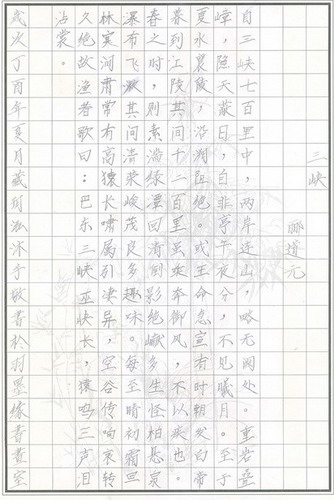 三峡
郦道元
自三峡七百里中，两岸连山，略无阙处。重岩叠
嶂，隐天蔽日，自非亭午夜分，不见曦月。至于
夏水襄陵，沿溯阻绝。或王命急宣，有时朝发白帝
暮到江陵，其间千二百里，虽乘奔御风，不以疾也
春之时，则素湍绿潭，回清倒影，绝巘多生怪柏，悬
瀑布飞漱其间，清荣峻茂，良多趣味。每至晴初霜旦
林寒涧肃，常有高猿长啸，属引凄异，空谷传响，哀转
久绝。故渔者歌曰：巴东三峡巫峡长，猿鸣三声泪
沾裳。
歲次丁酉年夏月沐手敬書於羽墨緣書畫室